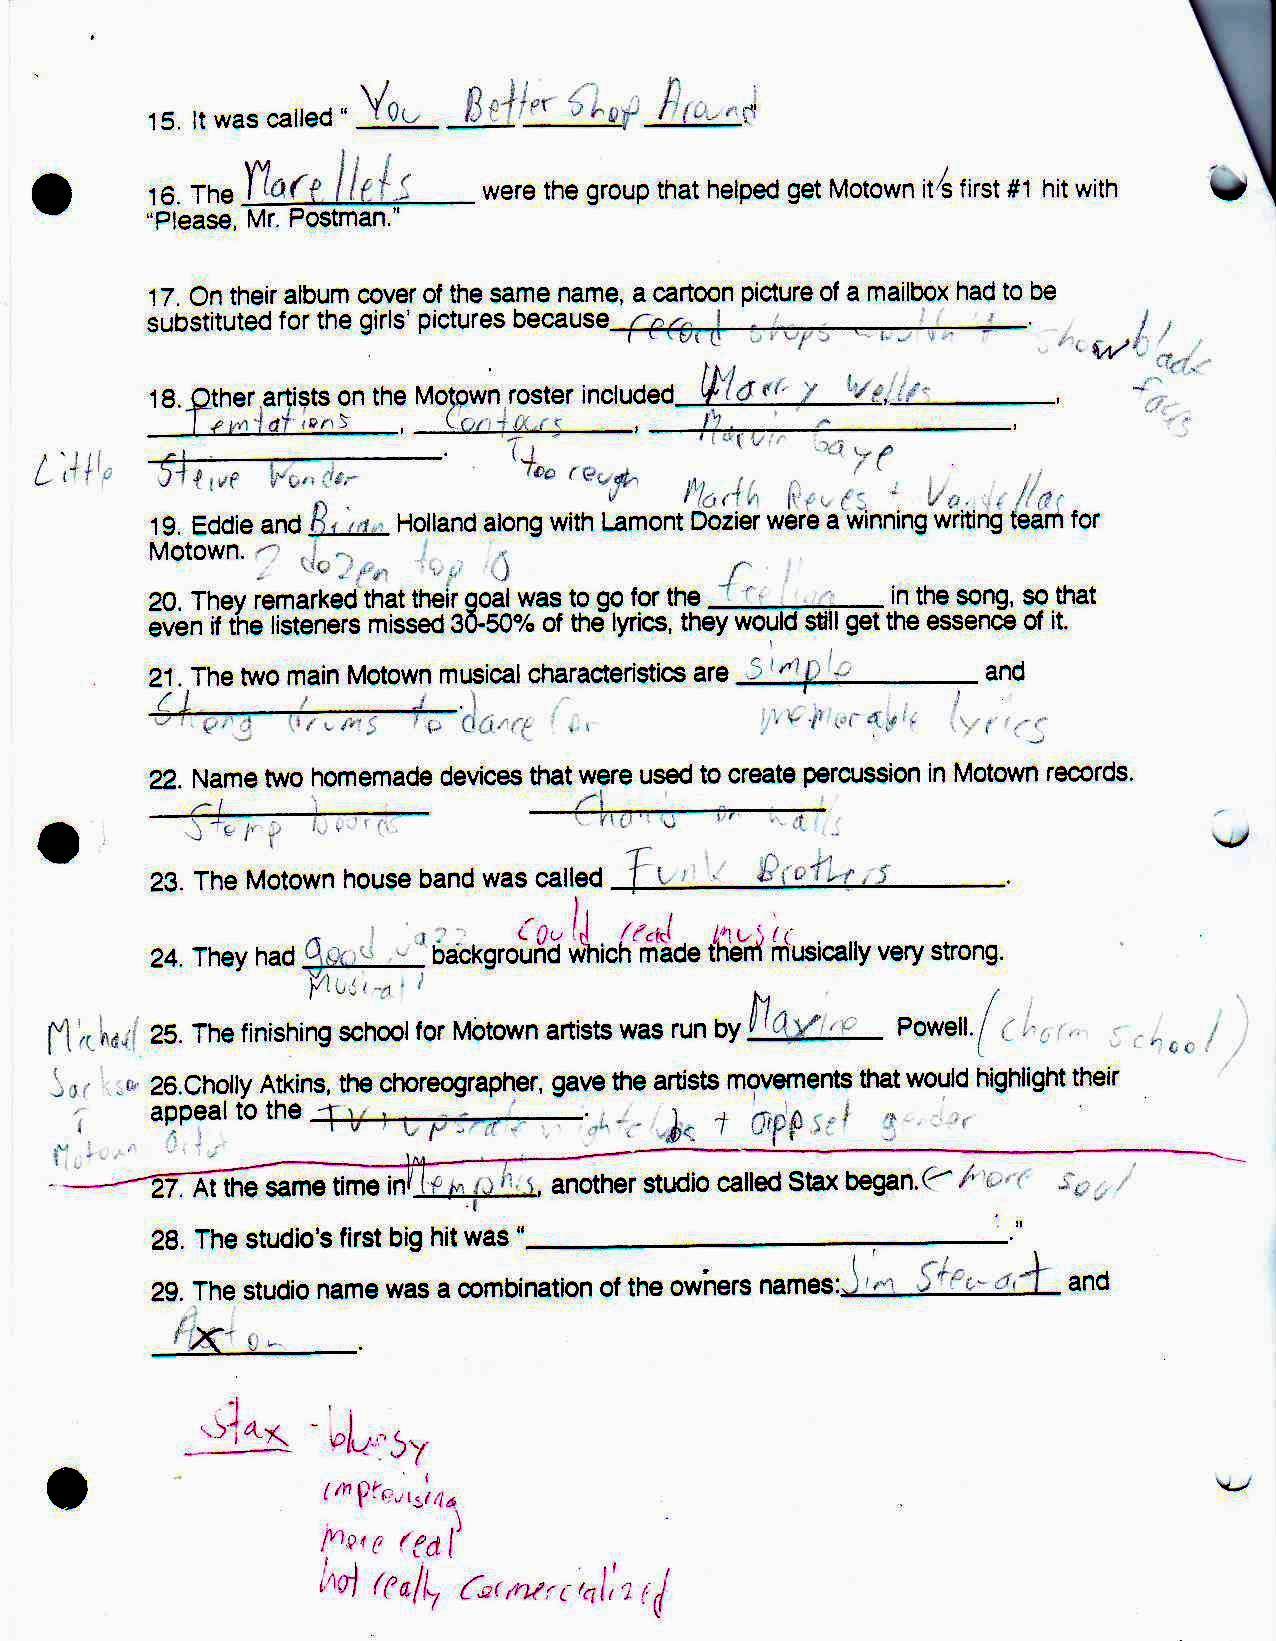 15. It was called " You Better Shop Around"
16. The Marellets were the group that helped get Motown it's first #1 hit with
"Please, Mr. Postman."
17. On their album cover of the same name, a cartoon picture of a mailbox had to be
substituted for the girls' pictures because record shops wouldn't show black faces.
18. Other artists on the Motown roster included Marry Welles,
Temtations, Contours, Marvin Gaye,
Little Steive Wonder. too rough
Marth Reves + Vandellas
19. Eddie and Brian Holland along with Lamont Dozier were a winning writing team for
Motown. 2 dozen top 10
20. They remarked that their goal was to go for the feeling in the song, so that
even if the listeners missed 30-50% of the lyrics, they would still get the essence of it.
21. The two main Motown musical characteristics are simple and
Strong drums to dance for. memorable lyrics
22. Name two homemade devices that were used to create percussion in Motown records.
Stomp boards Chains on walls
23. The Motown house band was called Funk Brothers.
could read music
24. They had good jazz background which made them musically very strong.
musical
25. The finishing school for Motown artists was run by Maxine Powell. (charm school)
Michael Jackson
Motown
26.Cholly Atkins, the choreographer, gave the artists movements that would highlight their
appeal to the TV, + oppset gender.
27. At the same time in Memphis, another studio called Stax began. ← more soul
28. The studio's first big hit was " ."
29. The studio name was a combination of the owners names: Jim Stewart and
Axton.
Stax - bluesy
improvising
more real
not really commercialized